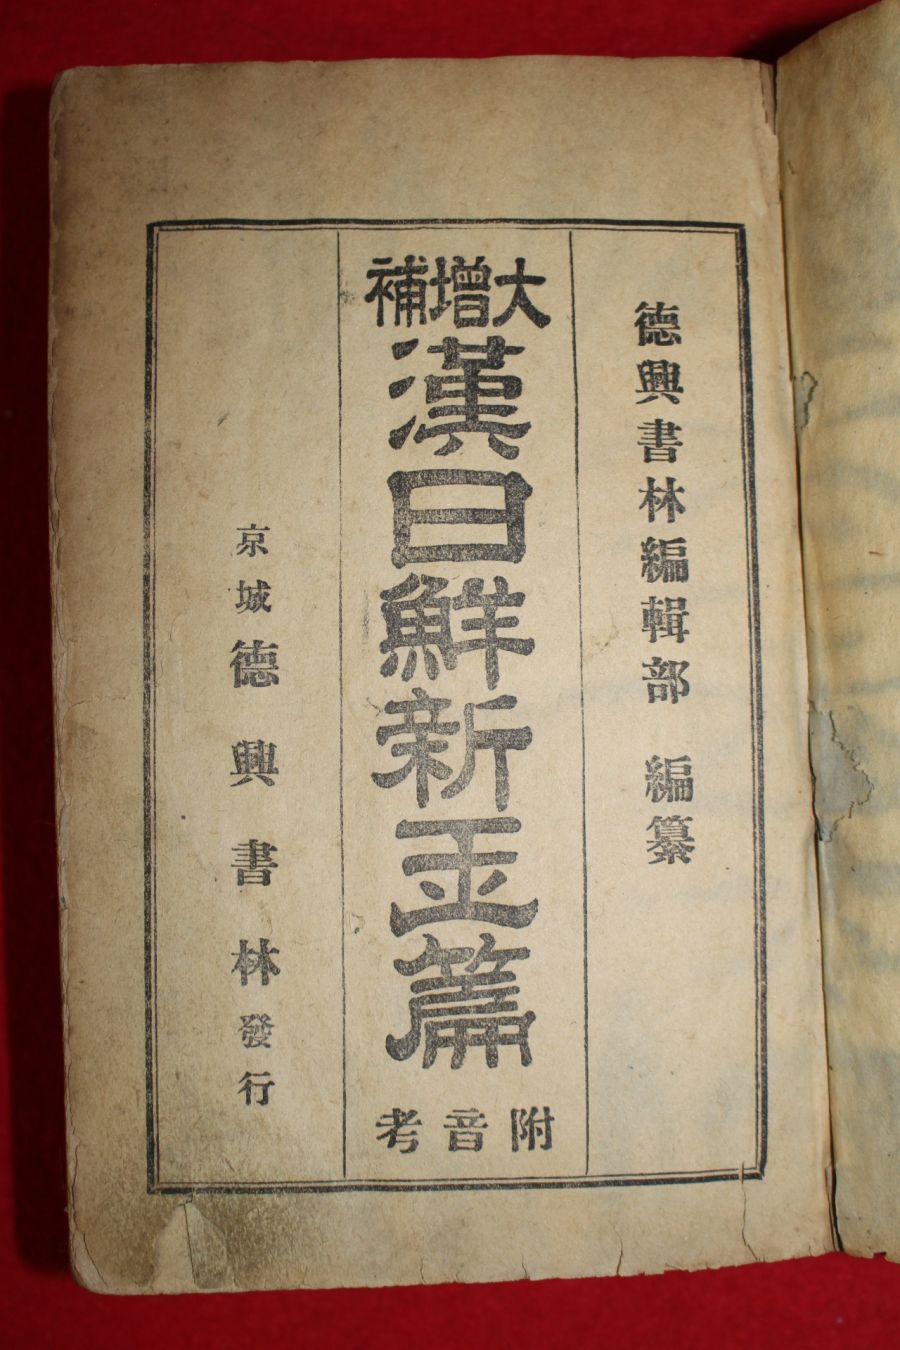 德興書林編輯部 編纂
大增補
漢日鮮新玉篇
附音考
京城 德興書林 發行